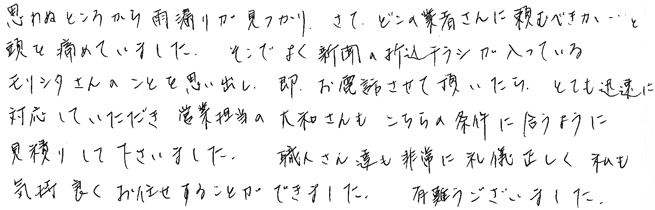 思わぬところから雨漏りが見つかり、さて、どこの業者さんに頼むべきか…と
頭を痛めていました。そこでよく新聞の折込チラシが入っている
モリシタさんのことを思い出し、即、お電話させて頂いたら、とても迅速に
対応していただき営業担当の大和さんもこちらの条件に合うように
見積りして下さいました。職人さん達も非常に礼儀正しく私も
気持良くお任せすることができました。有難うございました。